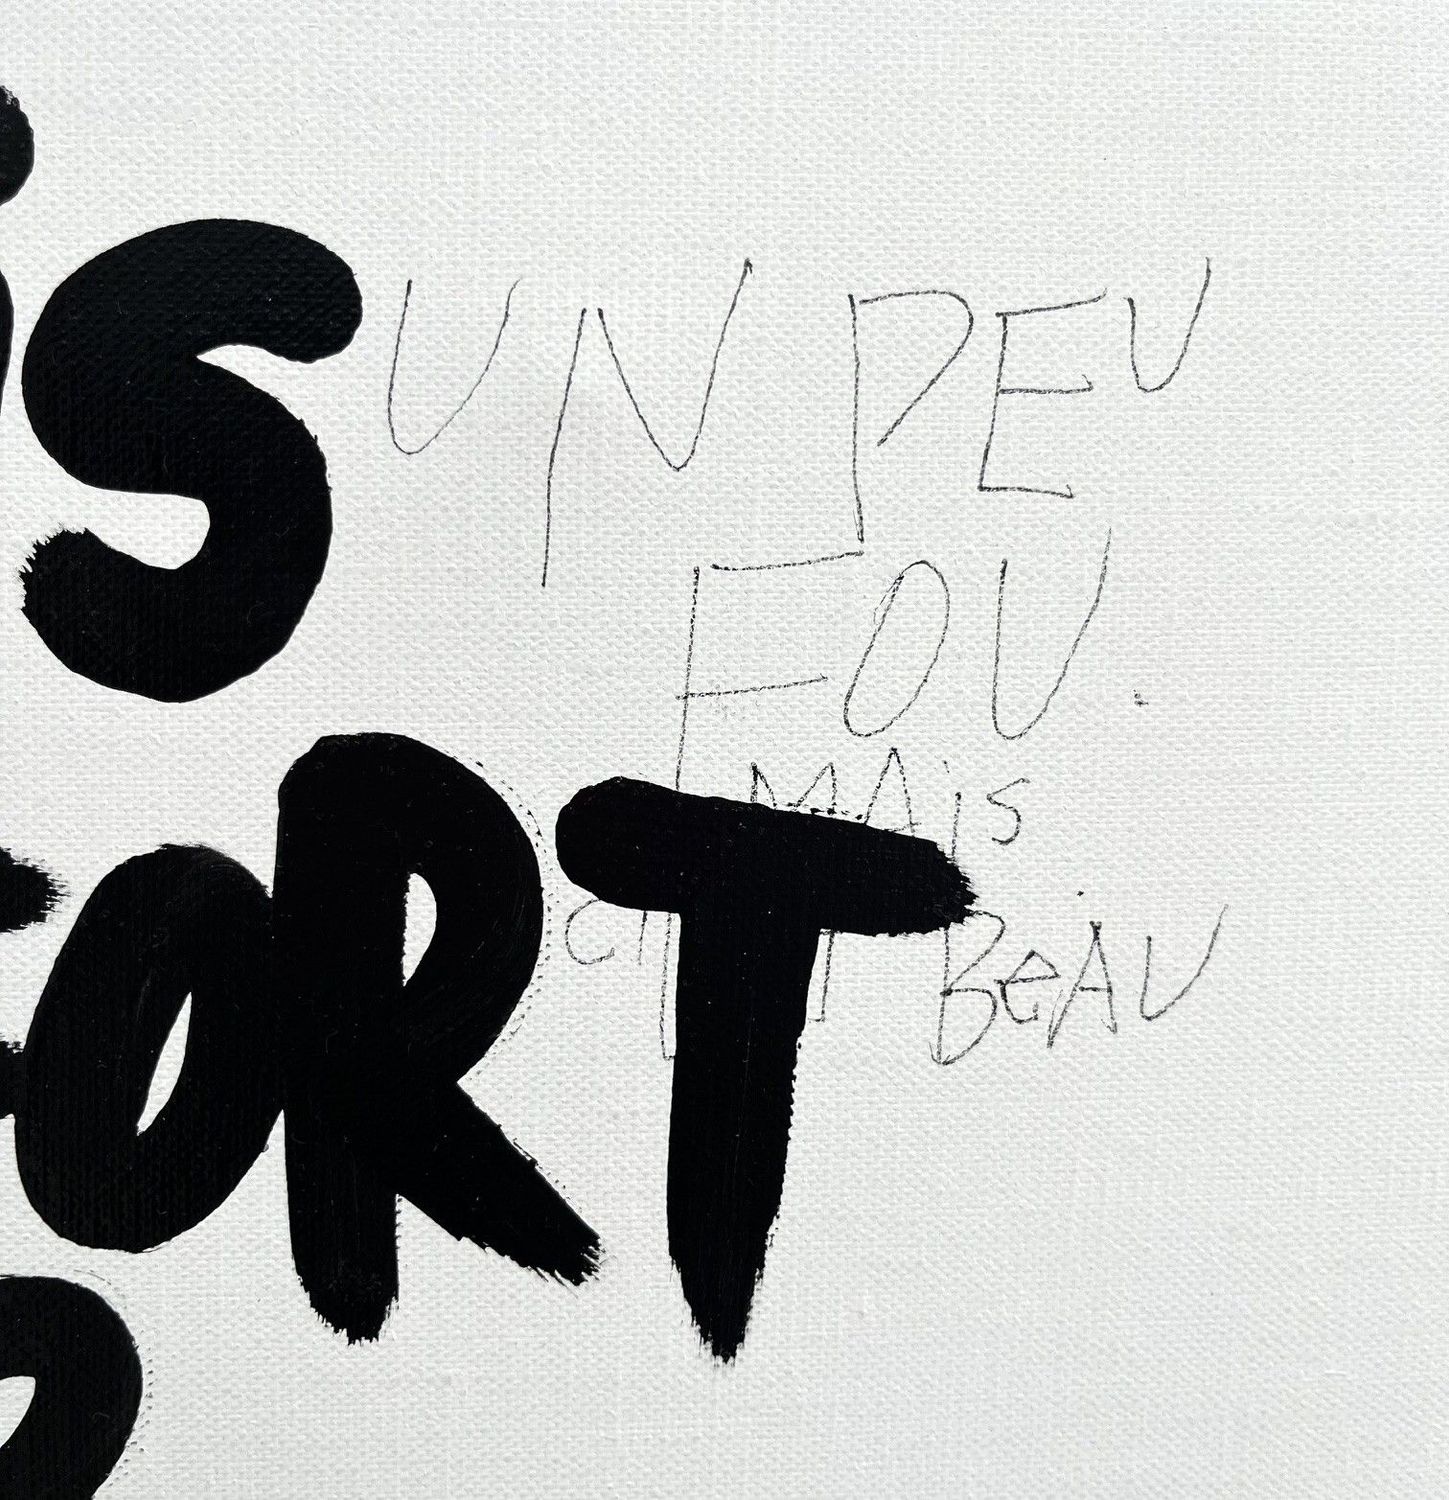 is
UN PEU
FOU.
MAiS
ORT
BeAU